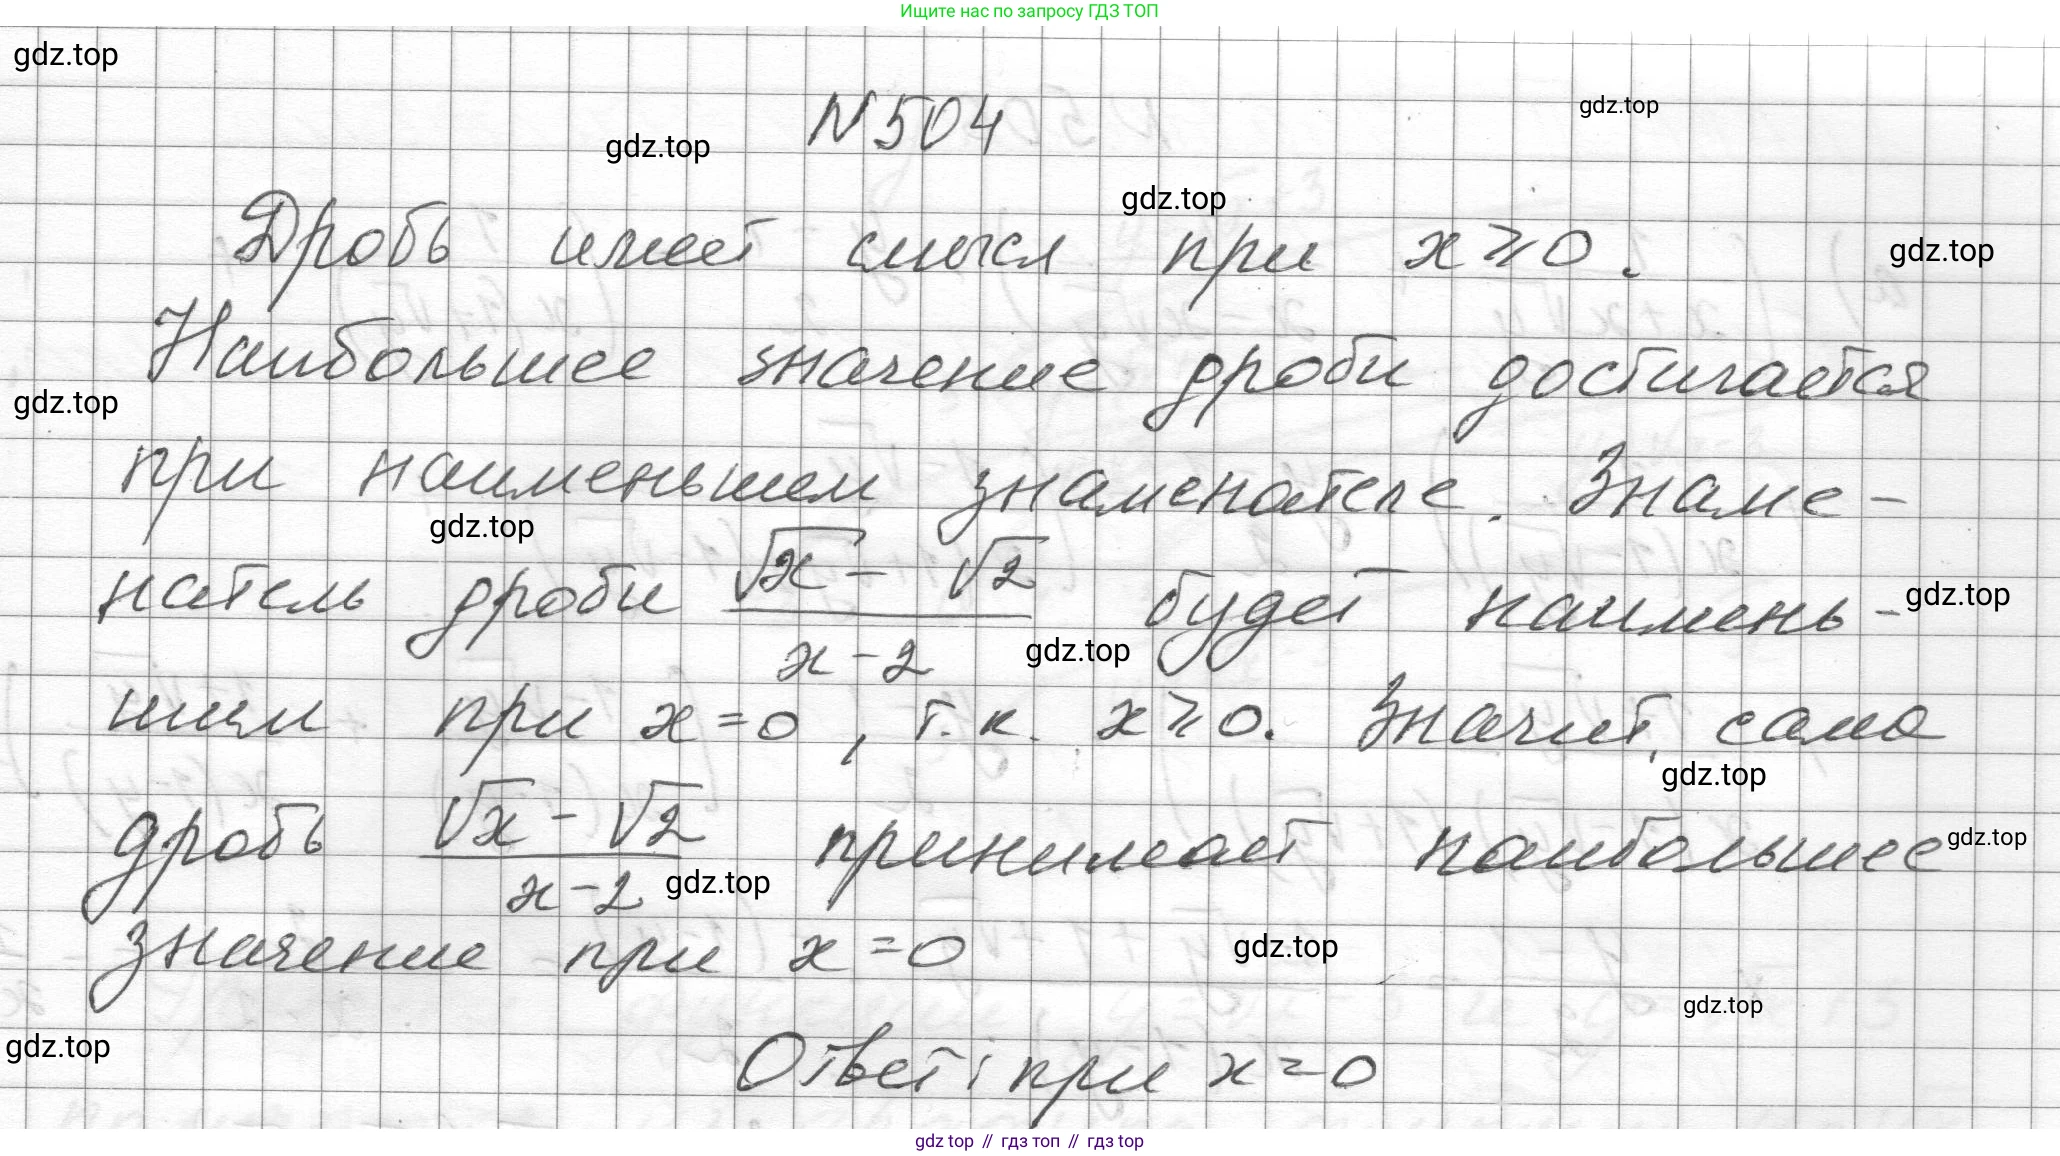 Ищите нас по запросу ГДЗ ТОП
gdz.top
N 504
gdz.top
gdz.top
gdz.top
Дробь имеет смысл при x ⩾ 0.
gdz.top
Наибольшее значение дроби достигается
gdz.top
при наименьшем знаменателе. Знаме-
gdz.top
натель дроби (√x - √2)/(x - 2) будет наимень-
gdz.top
gdz.top
шим при x = 0, т.к. x ⩾ 0. Значит, сама
gdz.top
дробь (√x - √2)/(x - 2) принимает наибольшее
gdz.top
gdz.top
значение при x = 0
gdz.top
gdz.top
gdz.top
Ответ: при x = 0
gdz top // гдз топ // гдз top